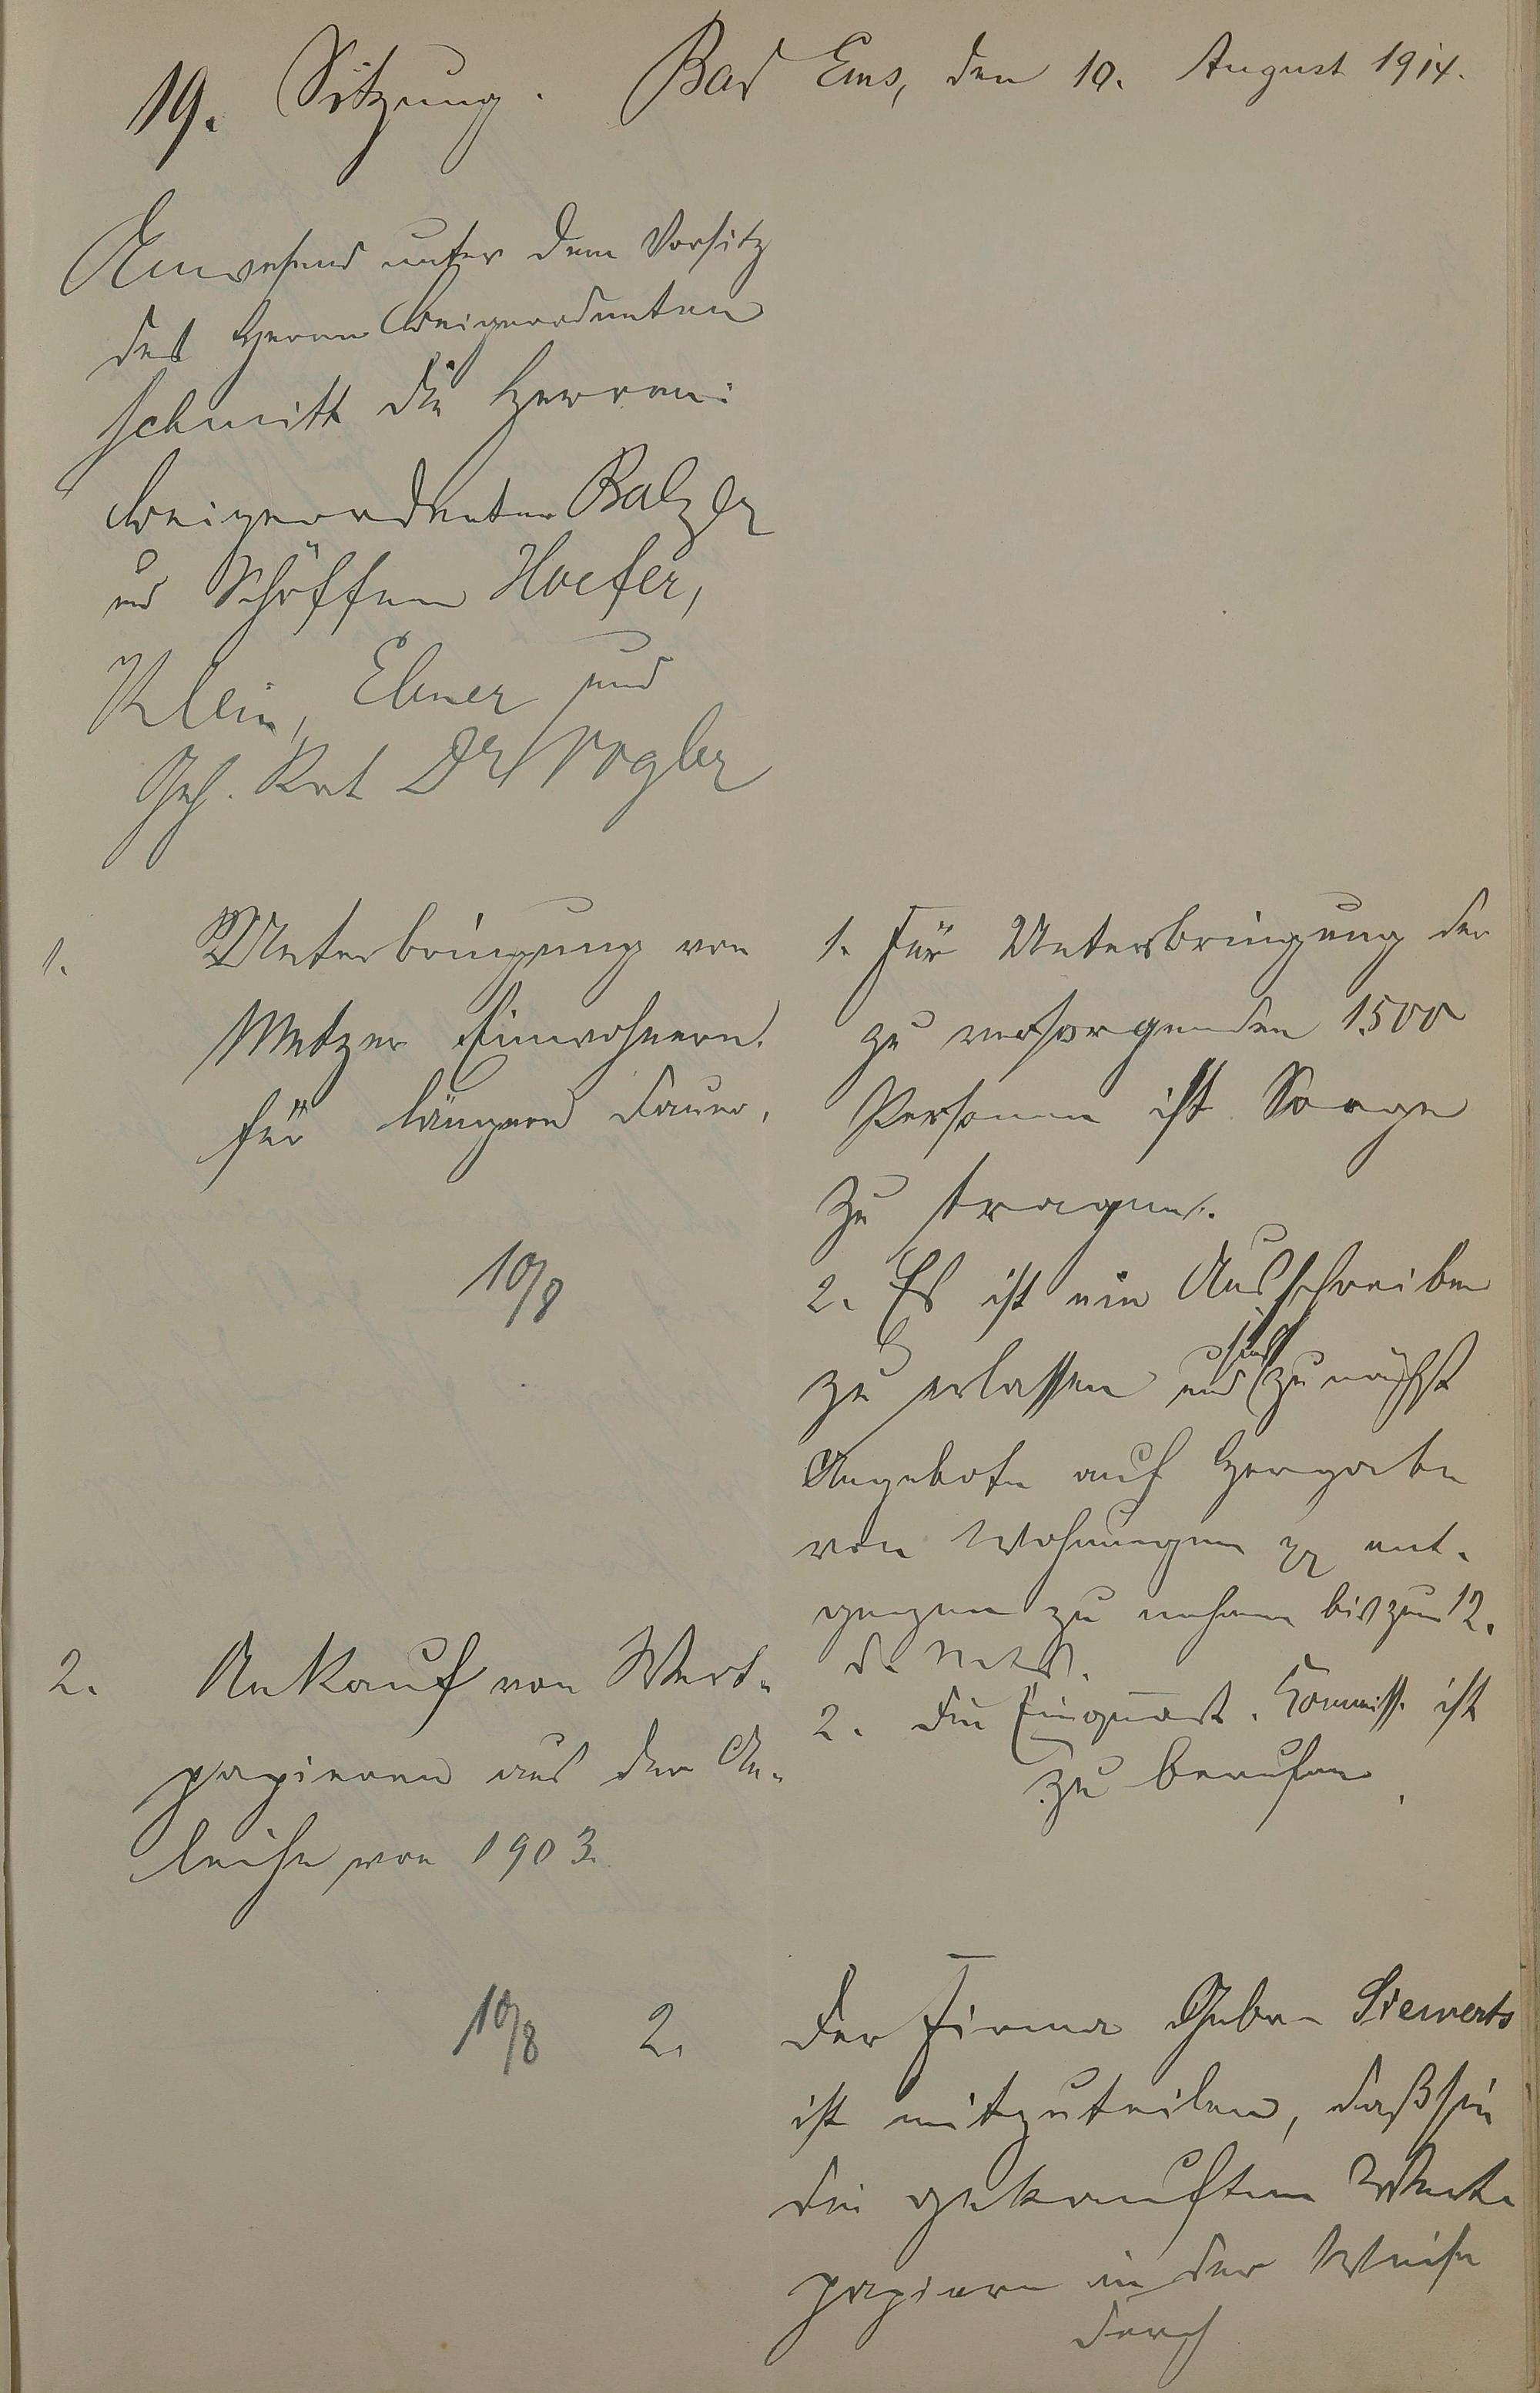 19. Sitzung. Bad Ems, den 10. August 1914.
Anwesend unter dem Vorsitz
des Herrn Beigeordneten
Schmitt die Herren:
Beigeordneter Balzer
und Schöffen Hoefer,
Klein, Ebner und
Geh. Rat Dr Vogler
1. Unterbringung von
Metzer Einwohnern
für längere Dauer.
10/8
1. Für Unterbringung der
zu versorgenden 1500
Personen ist Sorge
zu tragen.
2. Es ist ein Ausschreiben
zu erlassen und sind zunächst
Angebote auf Hergabe
von Wohnungen pp ent-
gegen zu nehmen bis zum 12.
d. Mts.
2. Die Einquart. Kommiss. ist
zu berufen.
2. Ankauf von Wert-
papieren aus der An-
leihe von 1903.
10/8
2. Der Firma Gebr. Siewerts
ist mitzuteilen, daß sie
die gekauften Wert-
papiere in der Weise
durch